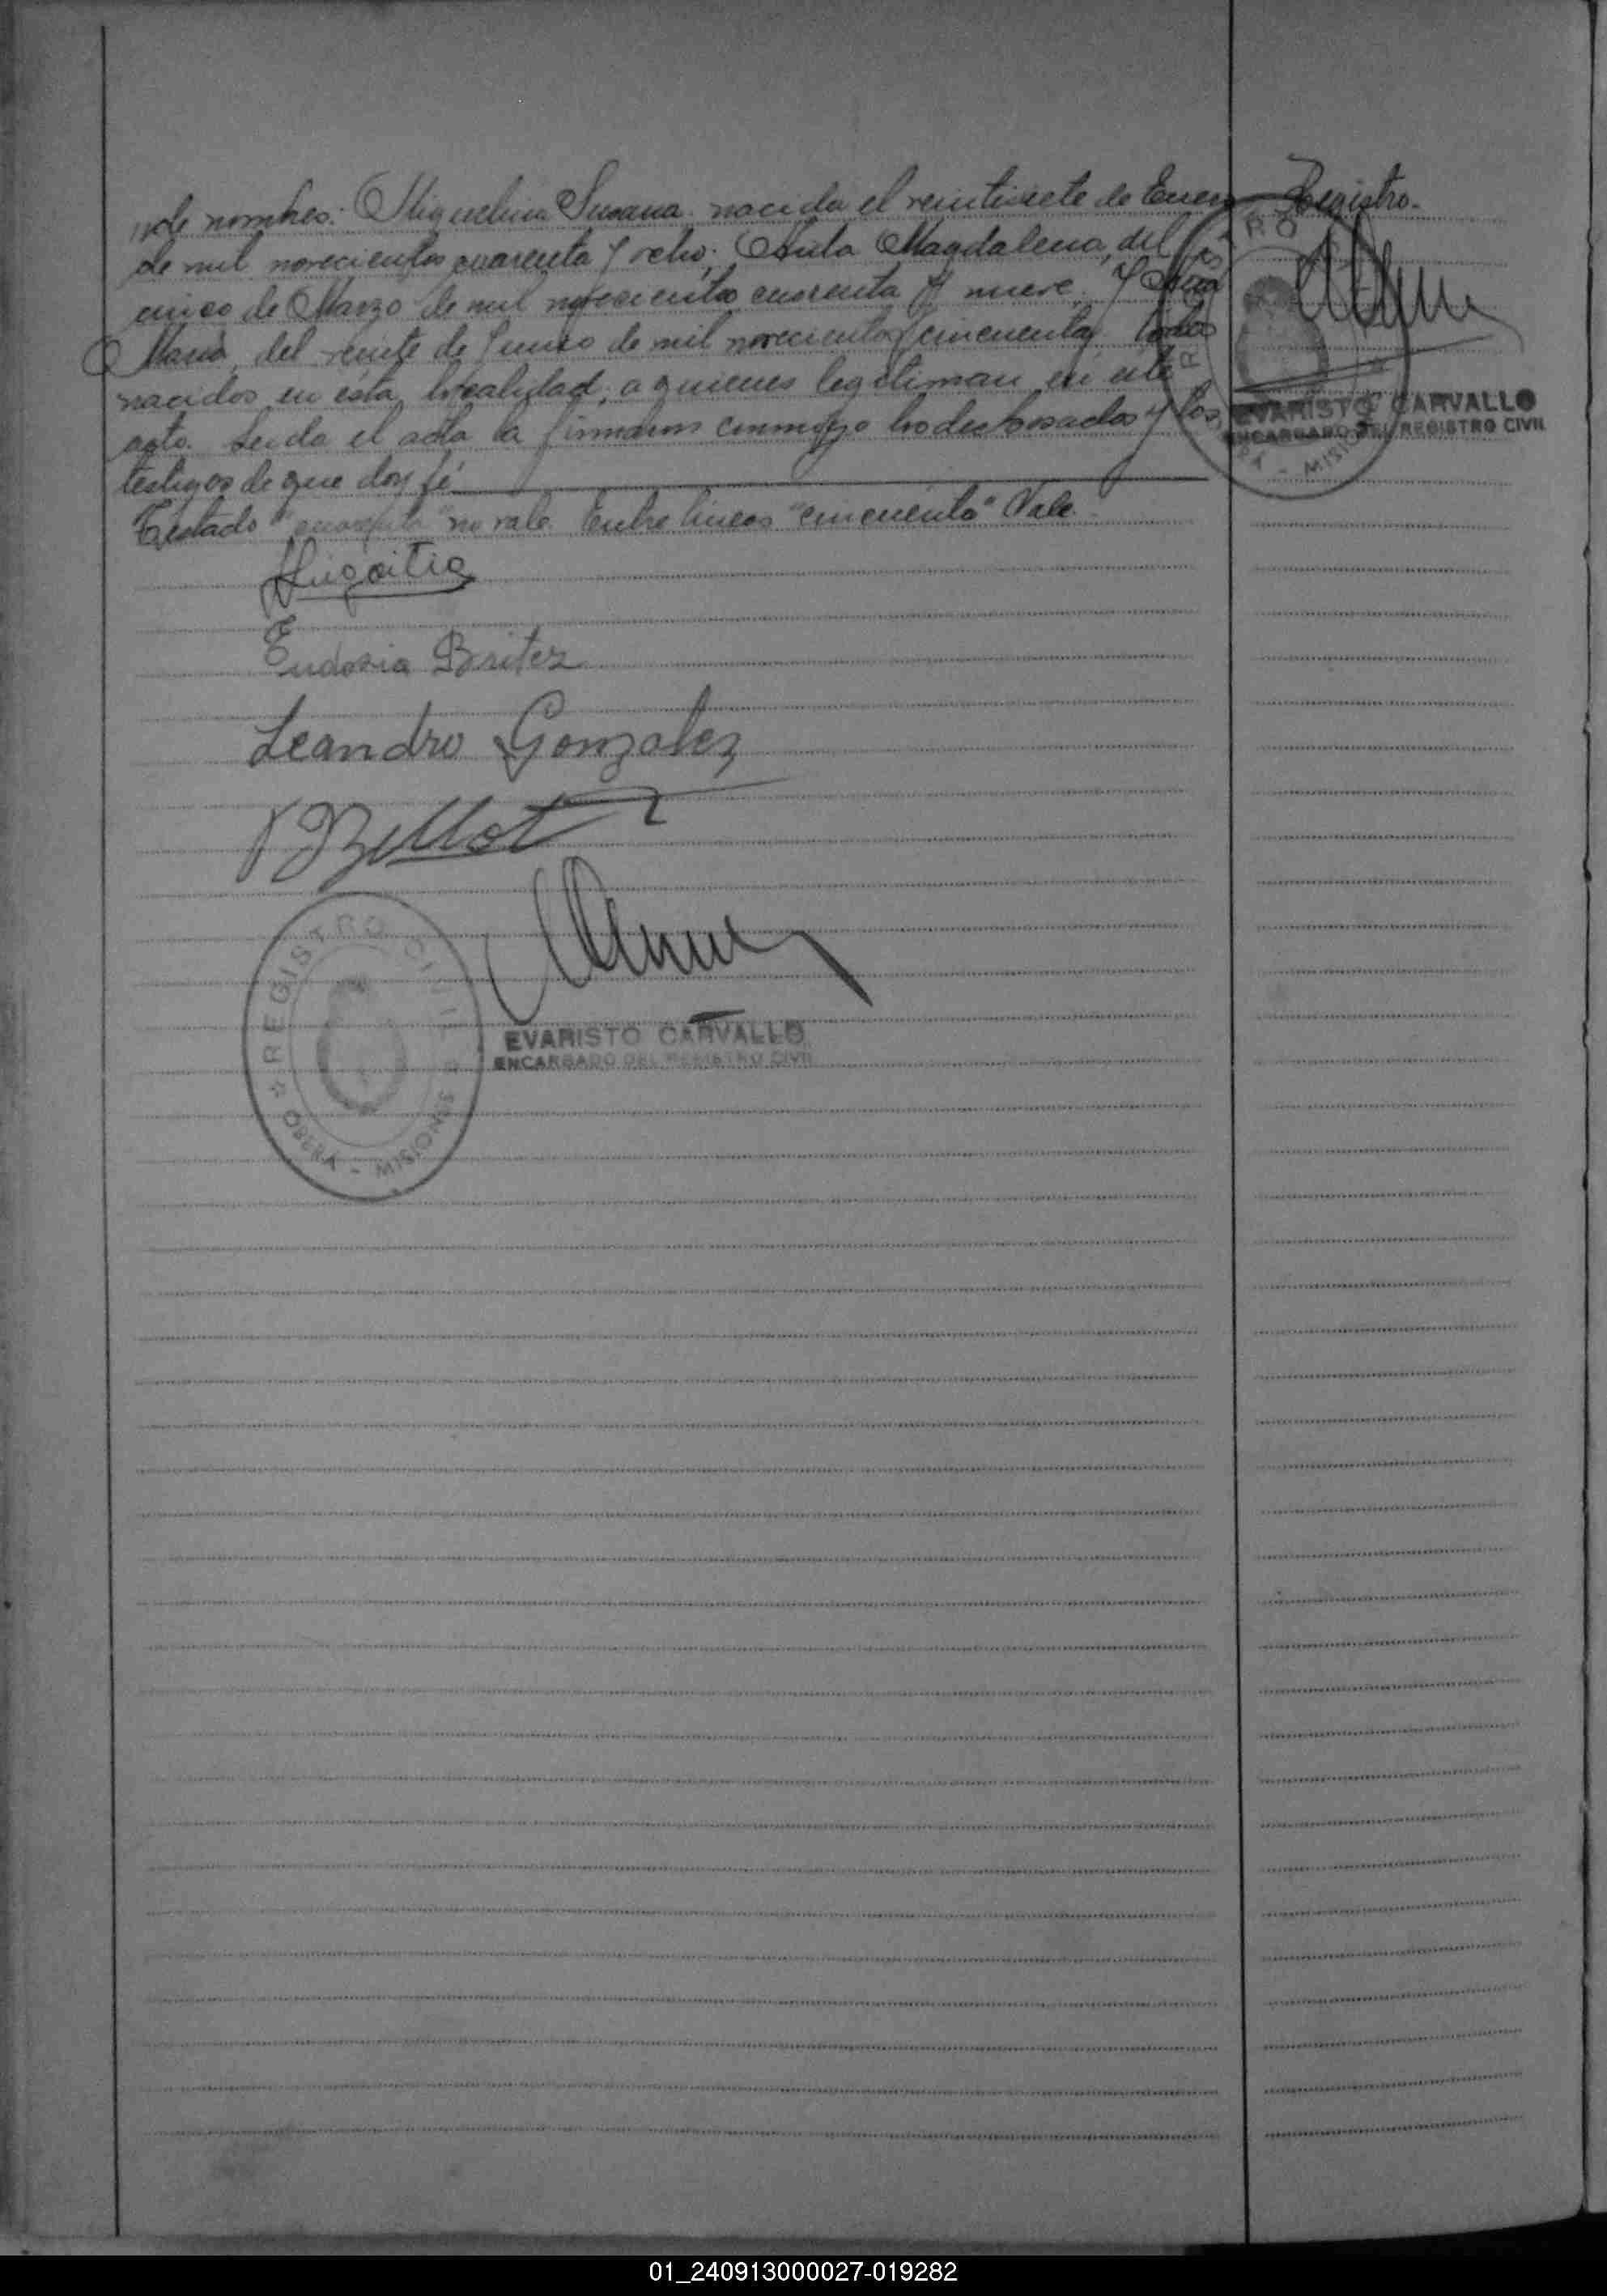 de nombres: Miguelina Susana nacida el veintisiete de Enero
de mil novecientos cuarenta y ocho; Anita Magdalena, del
cinco de Marzo de mil novecientos cuarenta y nueve, y
Maria, del veinte de Junio de mil novecientos cincuenta, todos
nacidos en esta localidad, a quienes legitiman en este
acto. Leida el acta la firmaron conmigo los desposados y los
testigos de que doy fé
Testado "cuarenta" no vale. Entre lineas "cincuenta" Vale.
Eudosia Britez
Leandro Gonzalez
REGISTRO CIVIL
OBERA - MISIONES
EVARISTO CARVALLO
ENCARGADO DEL REGISTRO CIVIL
Registro.
EVARISTO CARVALLO
ENCARGADO DEL REGISTRO CIVIL
01_240913000027-019282